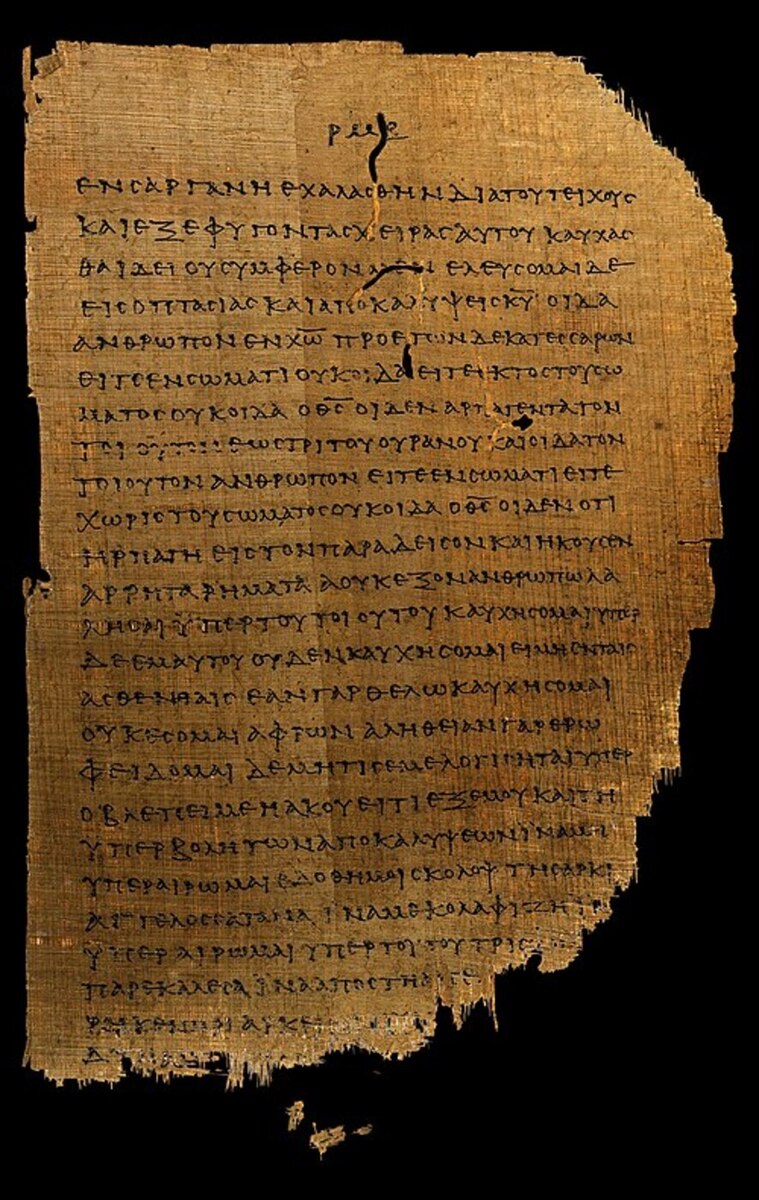 ρμε
ενσαργανηεχαλασθηνδιατουτειχους
καιεξεφυγοντασχειρασαυτουκαυχας
θαιδειουσυμφερονμενελευσομαιδε
εισοπτασιασκαιαποκαλυψεισκ̅υ̅οιδα
ανθρωπονενχ̅ω̅προετωνδεκατεσσαρων
ειτεενσωματιουκοιδαειτεεκτοστουσω
ματοσουκοιδαοθ̅ς̅οιδεναρπαγεντατον
τοιουτονεωστριτουουρανουκαιοιδατον
τοιουτονανθρωπονειτεενσωματιειτε
χωριστουσωματοσουκοιδαοθ̅ς̅οιδενοτι
ηρπαγηειστονπαραδεισονκαιηκουσεν
αρρηταρηματααουκεξονανθρωπωλα
λησαιϋπερτουτοιουτουκαυχησομαιϋπερ
δεεμαυτουουδενκαυχησομαιειμηενταις
ασθενιαισεανγαρθελωκαυχησομαι
ουκεσομαιαφρωναληθειανγαρερω
φειδομαιδεμητισεμελογισηταιϋπερ
οβλεπειμεηακουειτιεξεμουκαιτη
ϋπερβολητωναποκαλυψεωνιναμη
ϋπεραιρωμαιεδοθημοισκολοψτησαρκι
αγγελοσσαταναϊναμεκολαφιζηϊν
ϋπεραιρωμαιϋπερτουτουτρις
παρεκαλεσαϊνααποστη
αρκε
δυν